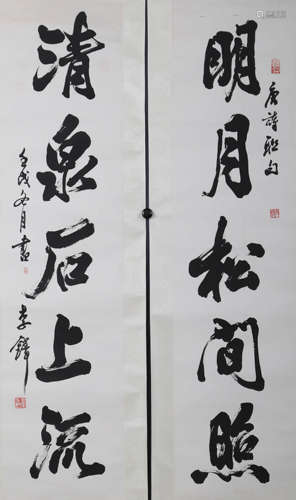 明月松間照
唐詩聯句
清泉石上流
壬戌冬月書
李鐸